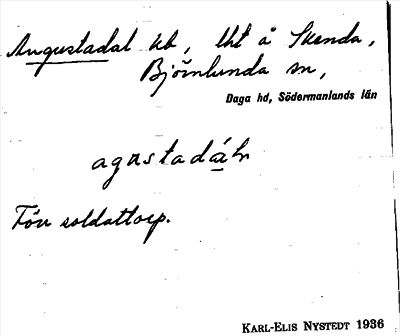 Augustadal kb, lht å Skenda,
Björnlunda sn,
Daga hd, Södermanlands län
agustadáln
Förr soldattorp.
KARL-ELIS NYSTEDT 1936